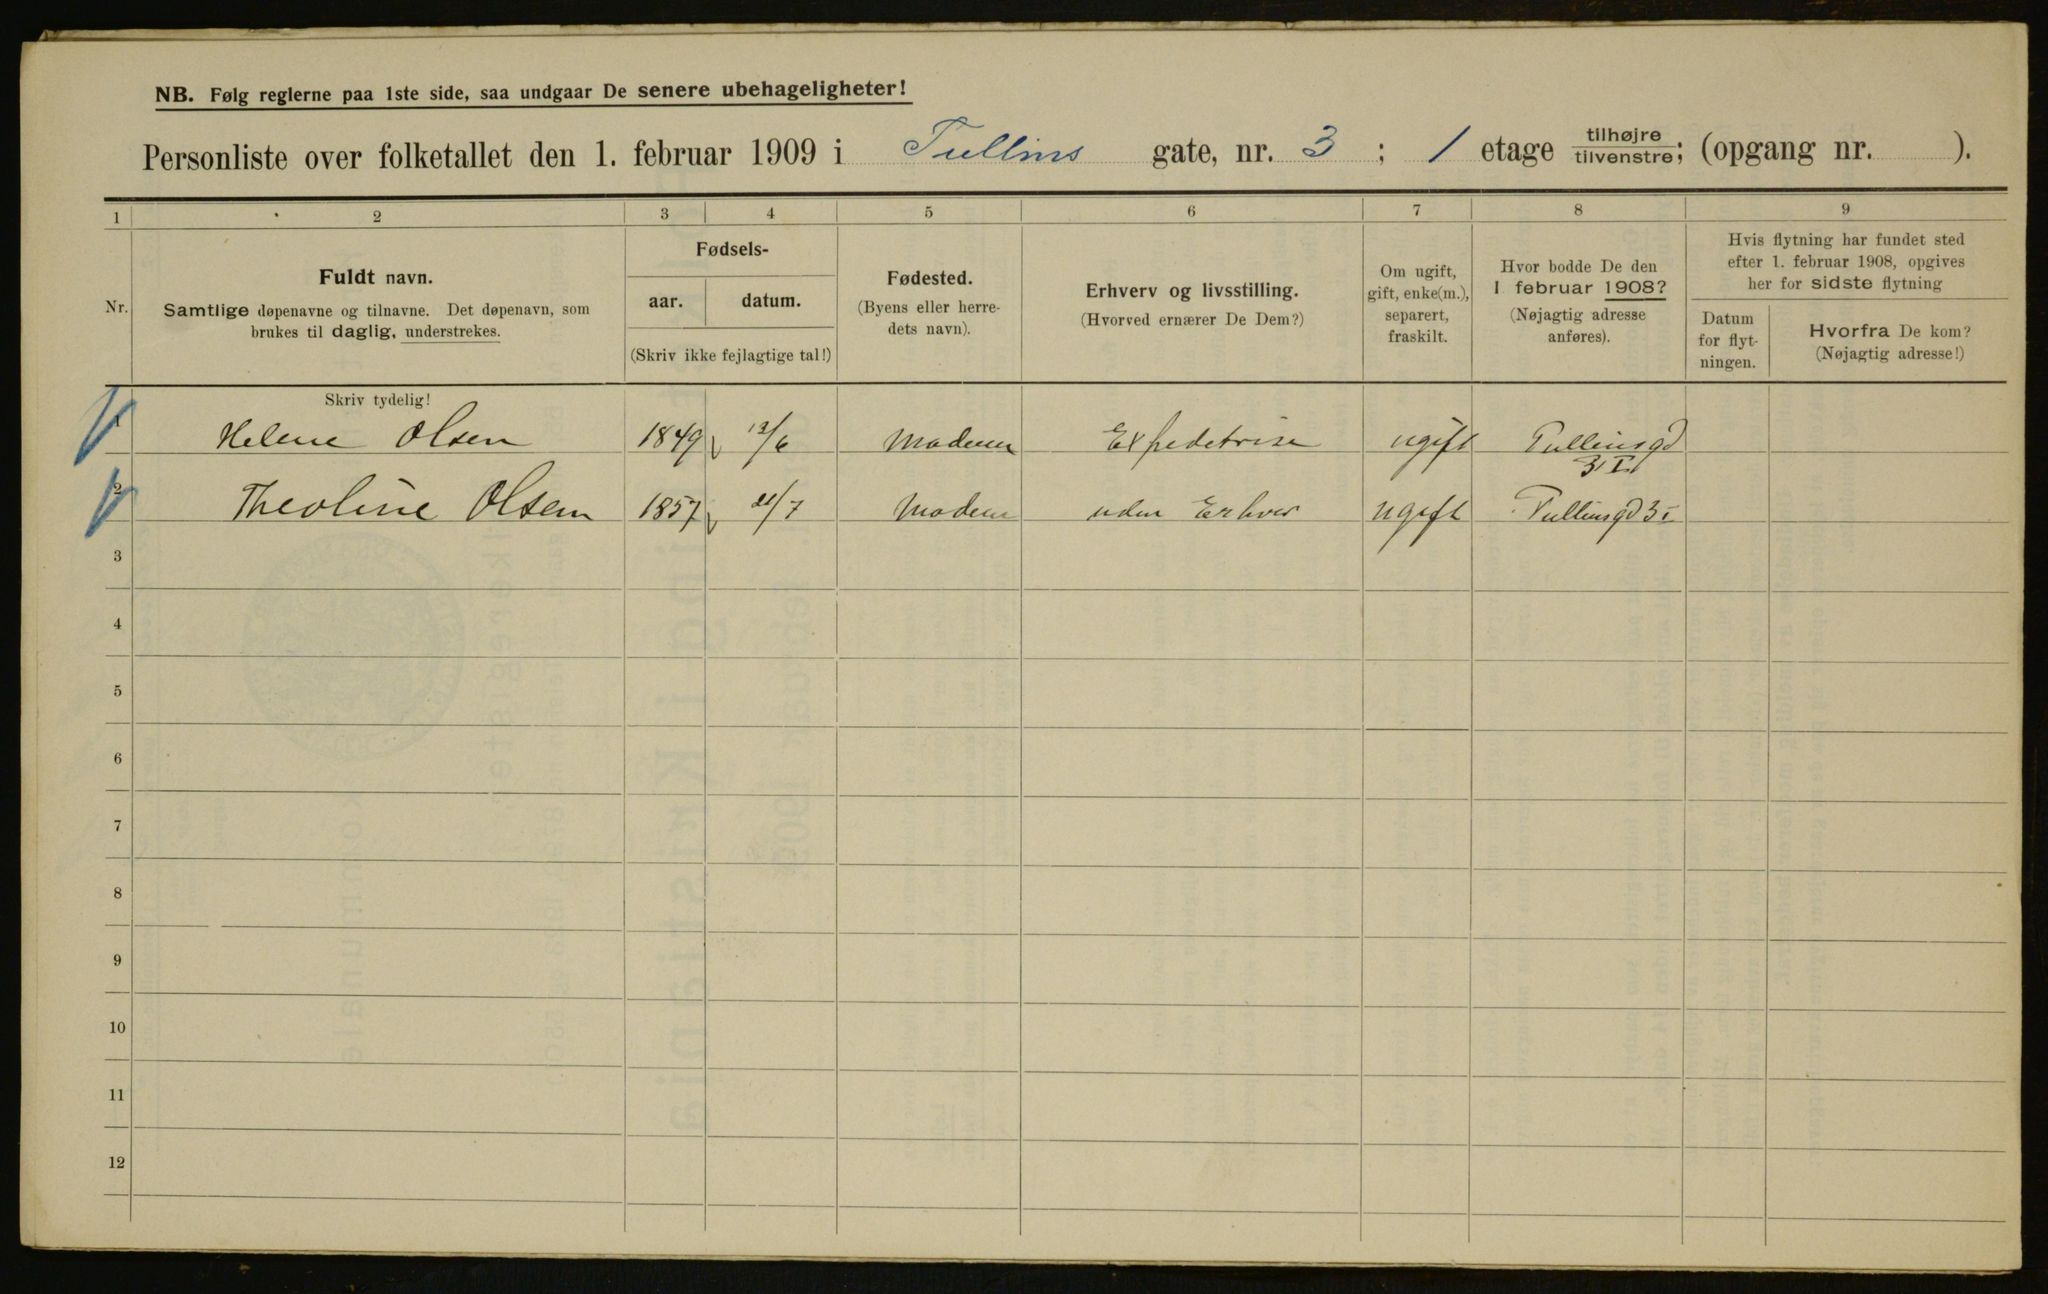 NB. Følg reglerne paa 1ste side, saa undgaar De senere ubehageligheter!
Personliste over folketallet den 1. februar 1909 i Tullins gate, nr. 3 ; 1 etage tilhøjre tilvenstre; (opgang nr. ).
1 2 3 4 5 6 7 8 9
Nr.
Fuldt navn.
Samtlige døpenavne og tilnavne. Det døpenavn, som
brukes til daglig, understrekes.
Fødsels-
aar. datum.
(Skriv ikke fejlagtige tal!)
Fødested.
(Byens eller herre-
dets navn).
Erhverv og livsstilling.
(Hvorved ernærer De Dem?)
Om ugift,
gift, enke(m.),
separert,
fraskilt.
Hvor bodde De den
1 februar 1908?
(Nøjagtig adresse
anføres).
Hvis flytning har fundet sted
efter 1. februar 1908, opgives
her for sidste flytning
Datum
for flyt-
ningen.
Hvorfra De kom?
(Nøjagtig adresse!)
Skriv tydelig!
1 Helene Olsen 1849 12/6 Modum Expedetrise ugift Tullinsgd
3 I
2 Theoline Olsen 1857 21/7 Modum uden Erhver ugift Tullinsgd 3 I
3
4
5
6
7
8
9
10
11
12